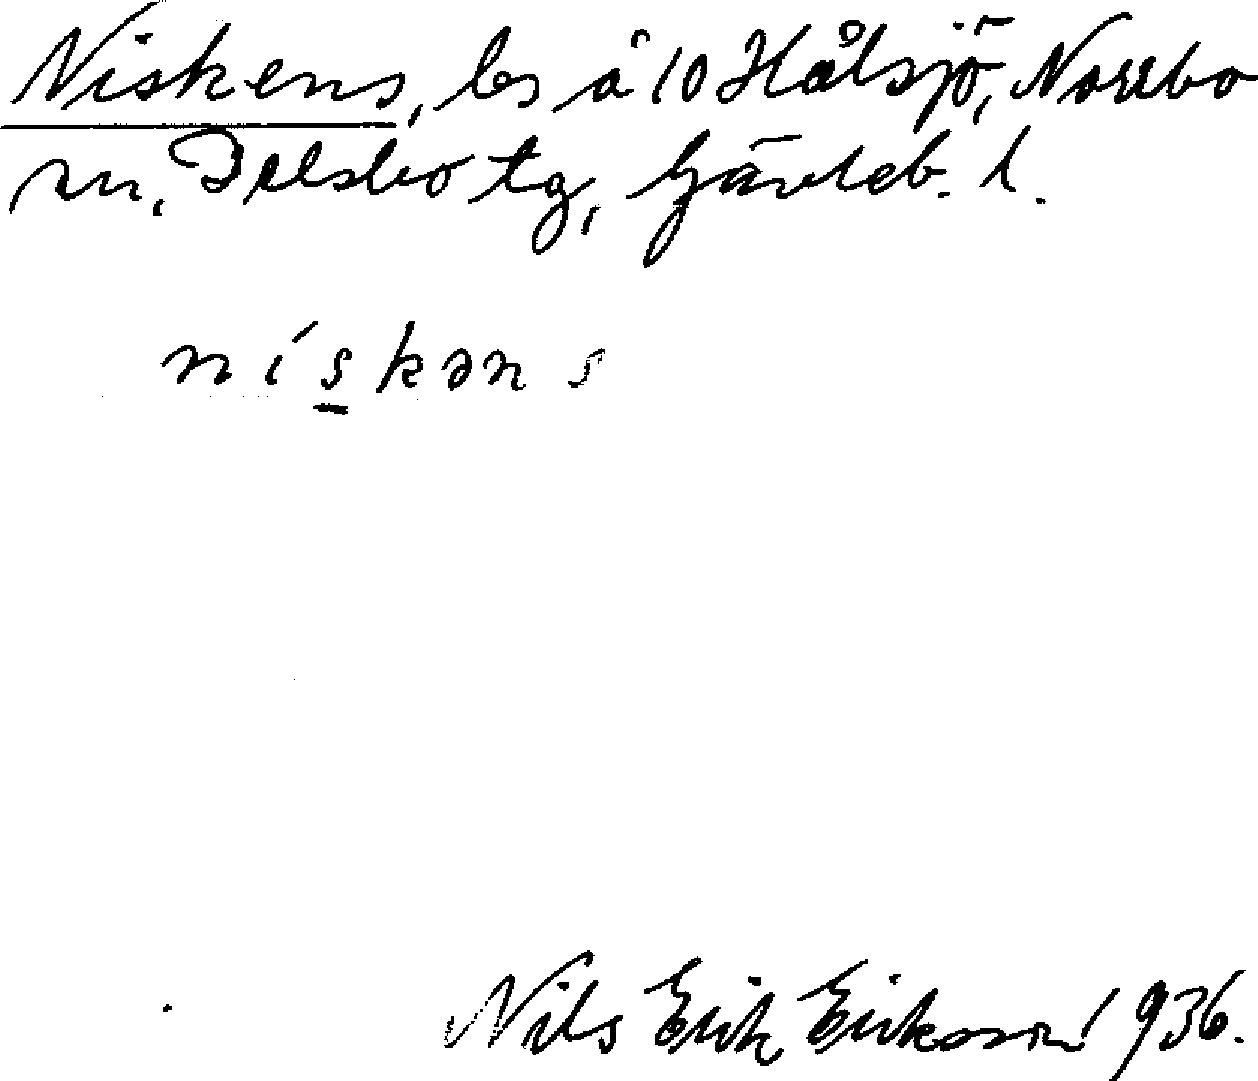 Niskens, bs å 10 Hålsjö, Norrbo
sn, Delsbo tg, Gävleb. l.
nískəns
Nils Erik Eriksson 1936.